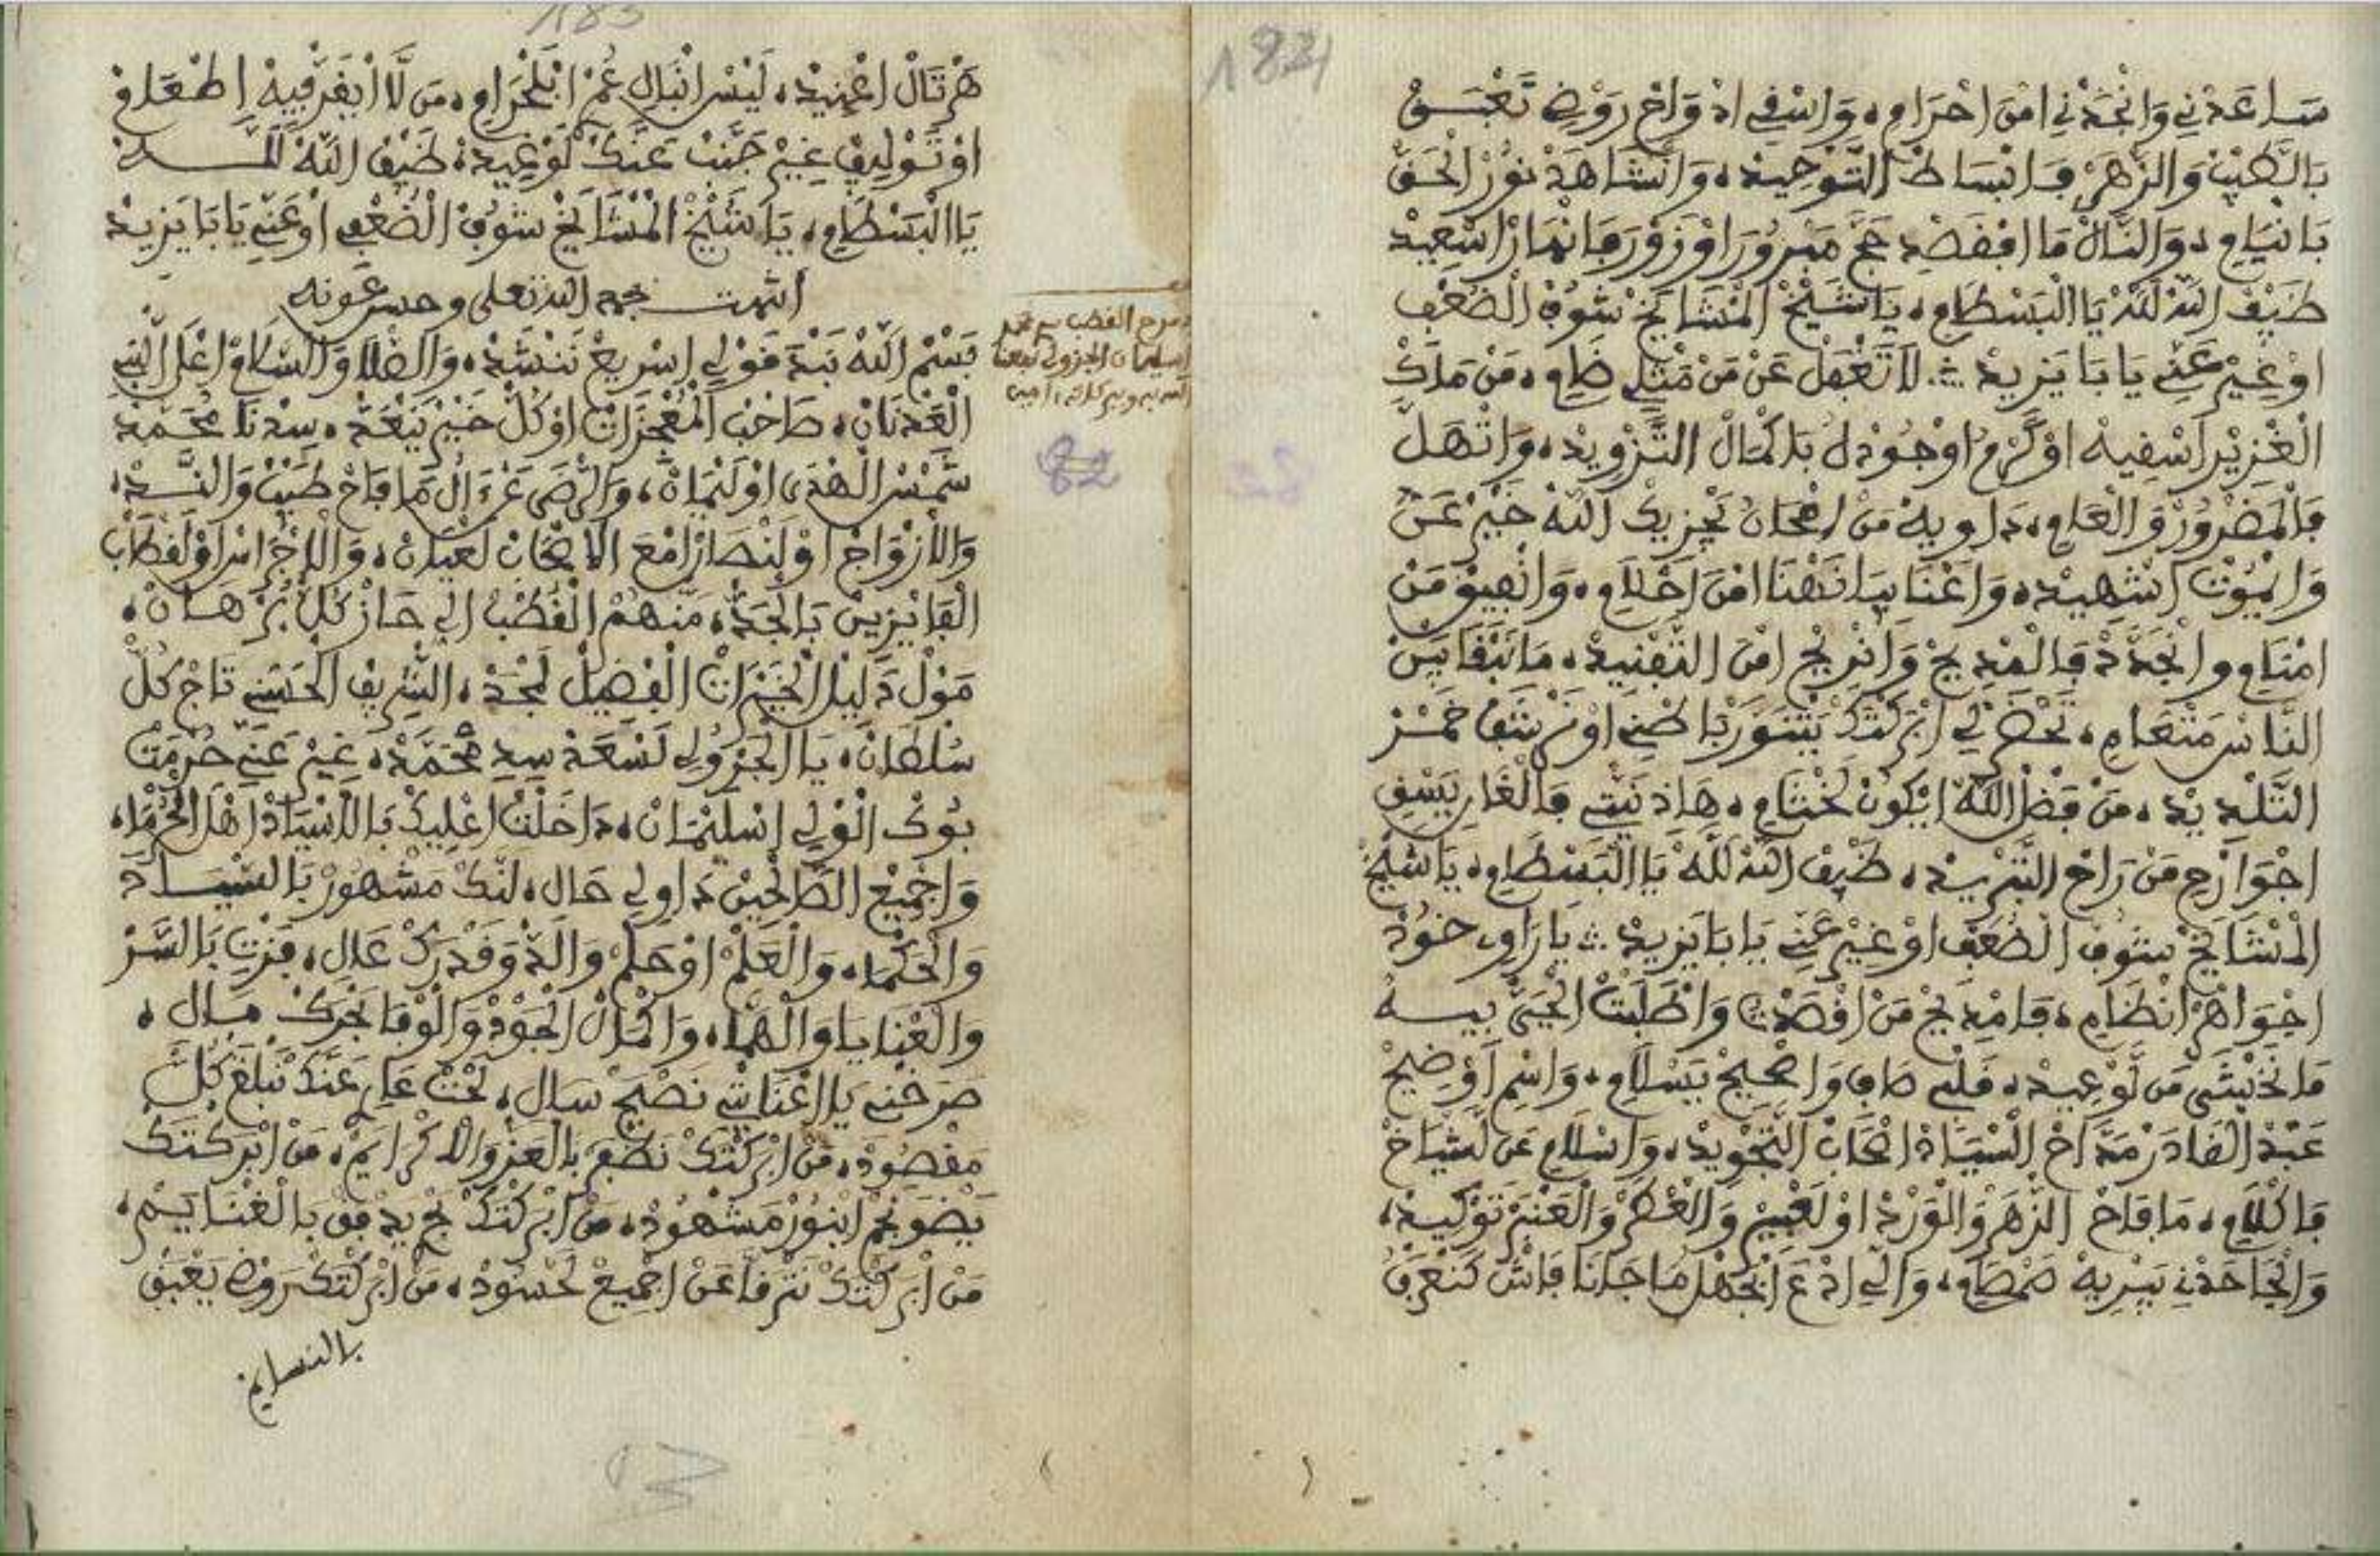 182
ساعَدْنِي وَانْجَدْنِي امْنَ احْرَامِ، وَاسْقِي ادْوَاحْ رَوْضِ تَعْبَقْ
بَالطِّيبْ وَالزّْهَرْ فَابْسَاطْ التَّوْحِيدْ، وَانْشَاهَدْ نُورْ الْحَقّْ
بَانْيَامِ، وَالنَّالْ مَا انْقَصْدِ حَجّْ مَبْرُورْ اوْزَوْرَ فَانْهَارْ اسْعِيدْ
ضَيْفْ اللّٰهْ للّٰهْ يَا الْبَسْطَامِ، يَا شَيْخْ الْمْشَايَخْ شُوفْ الْضُعْفِ
اوْغِيرْ عَنِّي يَا بَا يَزِيدْ ∴ لَا تَغْفَلْ عَنْ مَنْ مَثْلِي ظَامِ، مَنْ مَاكْ
الْغْزِيرْ اسْقِيهْ اوْكَرْمُ اوْجُودْ لُ بَاكْمَالْ التَّزْوِيدْ، وَاتْهَلَّ
فَالْمَضْرُورْ وَالْعَامِ، دَاوِيهْ مَنْ امْحَانُ يَجْزِيكْ اللّٰهْ خَيْرْ عَنُّ
وَايْمُوتْ اشْهِيدْ، وَاعْنَايَا نَهْنَا امْنْ احْلَامِ، وَانْفِيقْ مَنْ
امْنَامِ وانْجَدَّدْ فَالْمْدِيحْ وَانْرِيحْ امْنَ التَّفْنِيدْ، مَا نَبْقَا بَيْنْ
النَّاسْ مَتْعَامِ، تَحْضَرْ لِي ابْرَكْتَكْ يَتْنَوَرْ بَاطْنِي اوْنَرْشَفْ خَمْرْ
التَّلْدِيدْ، مَنْ فَضْلْ اللّٰهْ ايْكُونْ لَخْتَامِ، هَاذ نَيْتِي فَالْغَارِ يَسْقِي
اجْوَارْحِ مَنْ رَاحْ التَّبْرِيدْ، ضَيْفْ اللّٰهْ للّٰهْ يَا الْبَسْطَامِ، يَا شَيْخْ
الْمْشَايَخْ شُوفْ الْضُعْفِ اوْغِيرْ عَنِّي يَا بَا يَزِيدْ ∴ يَا رَاوِي خُودْ
اجْوَاهَرْ انْظَامِ، فَامْدِيحْ مَنْ اقْصَدْتْ وَاطْلَبْتْ الْحَيّْ بِيهْ
مَا نَخْشَى مَنْ لَوْعِيدْ، قَلْبِي صَافِي وَاصْحِيحْ يَسْلَامِ، وَاسْمِ اوْضِيحْ
عَبْدْ الْقَادَرْ مَدَّاحْ السْيَادْ اصْحَابْ التَّجْوِيدْ، وَاسْلَامِ عَن لَشْيَاخْ
فَاكْلَامِ، مَا فَاحْ الزّْهَرْ وَالْوَرْدْ اوْلَعْبِيرْ وَالْعْطَرْ وَالْعَنْبَرْ تَوْكِيدْ،
وَالْجَاحَدْنِي نَبْرِيهْ صَمْصَامِ، وَالِّي ادْعَ انْجَهْلْ مَا جَانَا فَاشْ كَنَعْرَفْ
183
هَرْتَالْ اعْنِيدْ، لَيْسْ انْبَالِ عُمْرْ ابْلَخْرَامِ، مَن لَّا ايْفَرْ فِيهْ اطْعَامْ
اوْتَوْلِيفْ غِيرْ جَنَّبْ عَنَّكْ لَوْغِيدْ، ضَيْفْ اللّٰهْ للّٰه
يَا الْبَسْطَامِ، يَا شَيْخْ الْمْشَايَخْ شُوفْ الْضُعْفِ اوْعَنِّي يَا بَا يَزِيدْ
انتهت بحمد الله تعلى وحسن عونه
بَسْمْ اللّٰهْ نَبْدَ قَوْلِي اسْرِيعْ نَنْشَدْ، وَالصْلَا وَالسْلَامْ اعْلَ النّْبِي
الْعَدْنَانْ، صَاحْبْ الْمُعْجِزَاتْ اوْكُلّْ خَيْرْ يَنْعَدّْ، سِدْنَا مُحَمَّدْ
شَمْسْ الْهْدَى اوْلَيْمَانْ، وَالرّْضَى عَنْ ءَالْ مَا فَاحْ طَيْبْ وَالنَّدْ،
وَالْأزْوَاجْ اوْلَنْصَارْ امْعَ الاصْحَابْ لَعْيَانْ، وَالاجْرَاسْ اوْلَقْطَابْ
الْفَايْزِينْ بَالْجَدّْ، مَنْهُمْ الْقُطْبْ الِي حَازْ كُلّْ بُرْهَانْ،
مَوْلْ دَلِيلْ الْخَيْرَاتْ الْفْضِيلْ لَمْجَدْ، الشْرِيفْ الْحَسَنِي تَاجْ كُلّْ
سُلْطَانْ، يَا الْجَزُولِي لَسْعَدْ سِدِ مُحَمَّدْ، غِيرْ عَنِّي حُرْمَتْ
بُوكْ الْوْلِي اسْلِيمَانْ، دَاخَلْتْ اعْلِيكْ بَالاسْيَادْ اهْلْ الْحُرْمَا،
وَاجْمِيعْ الصَّالْحِينْ دَاوِلِي حَالِ، لَنَّكْ مَشْهُورْ بَالسْيَادَ
وَالْحَكْمَا، وَالْعَلْمْ اوْحَلْمْ وَالذُّوقْ وَقَدْرَكْ عَالِ، فَزْتِ بَالسَّرّْ
وَالْعْنَايَا وَالْهْمَا، وَاكْمَالْ الْجُودْ وَالْوْفَا بَحْرَكْ مَالِ،
صَرَخْنِي يَا اعْنَايْتِي نَصْبَحْ سَالِ، لَحْتْ عَارِ عَنَّكْ نَبْلَغْ كُلّْ
مَقْصُودْ، مَنْ ابْرَكْتَكْ نَطْعَمْ بَالْعَزّْ وَالاكْرَايَمْ، مَنْ ابْرَكْتَكْ
يَضْوِي نَجْمِ ابْنُورْ مَشْهُودْ، مَنْ ابْرَكْتَكْ بَحْرِ يَدْفَقْ بَالْغْنَايَمْ،
مَنْ ابْرَكْتَكْ نَتْرَقَّا عَنْ اجْمِيعْ لَحْسُودْ، مَنْ ابْرَكْتَكْ رَوْضِ يَعْبَقْ
بالنسايم
مدح القطب سيدي محمد
بن سليمان الجزولي نفعنا
الله به وببركاته، امين
82